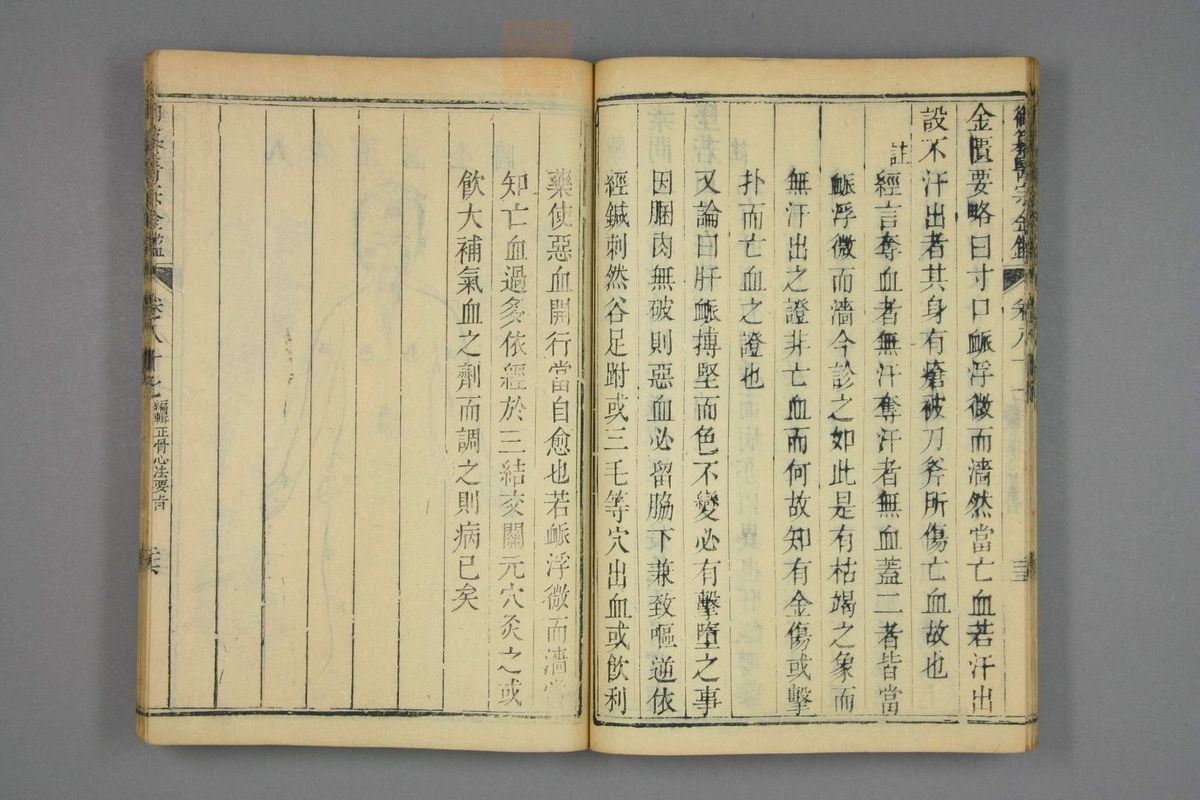 御纂醫宗金鑑 卷八十七
金匱要略曰寸口䘑浮微而濇然當亡血若汗出
設不汗出者其身有瘡被刀斧所傷亡血故也
註
經言奪血者無汗奪汗者無血蓋二者皆當
䘑浮微而濇今診之如此是有枯竭之象而
無汗出之證非亡血而何故知有金傷或擊
扑而亡血之證也
又論曰肝䘑搏堅而色不變必有擊墮之事
因䐃肉無破則惡血必留脇下兼致嘔逆依
經鍼刺然谷足跗或三毛等穴出血或飲利
藥使惡血開行當自愈也若䘑浮微而濇當
知亡血過多依經於三結交關元穴灸之或
飲大補氣血之劑而調之則病已矣
御纂醫宗金鑑 卷八十七 編輯正骨心法要旨